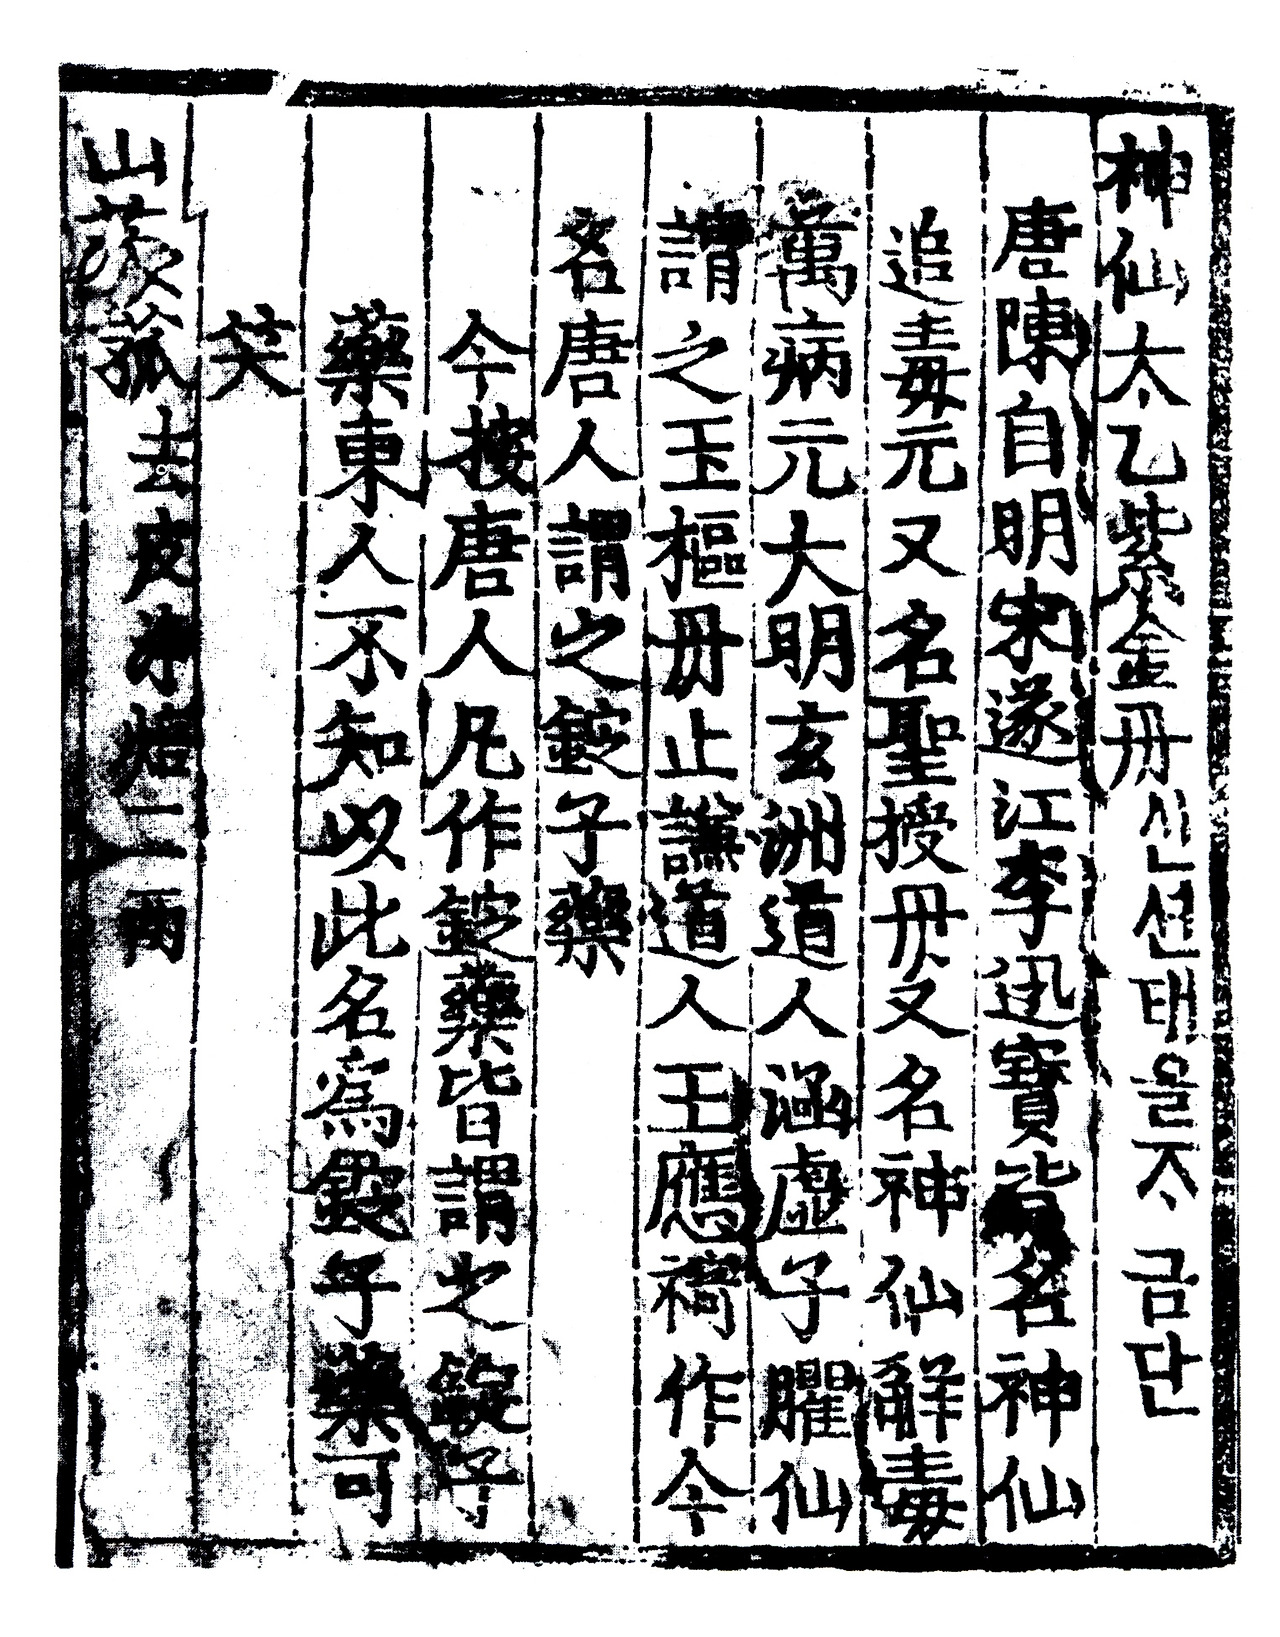 神仙太乙紫金丹 신션태을ᄌᆞ금단
唐陳自明宋遂江李迅寶皆名神仙
追毒元又名聖授丹又名神仙解毒
萬病元大明玄洲道人涵虛子臞仙
謂之玉樞丹止謙道人王應裿作今
名唐人謂之錠子藥
今按唐人凡作錠藥皆謂之錠子
藥東人不知以此名爲錠子藥可
笑
山茨菰去皮淨焙二兩